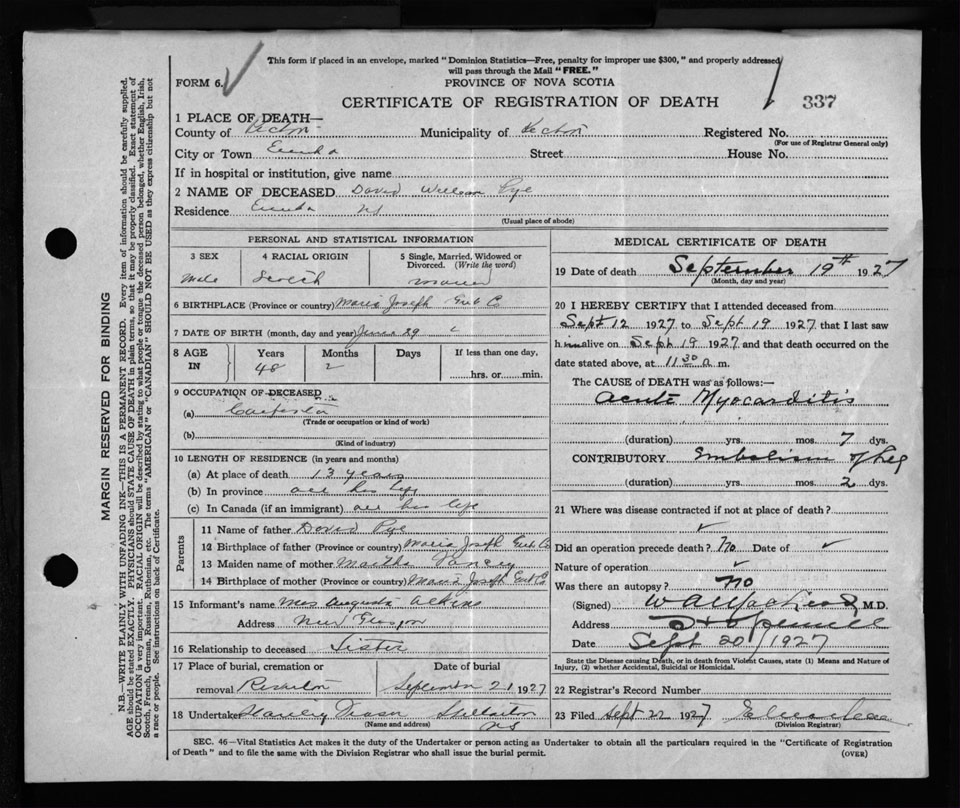 This form if placed in an envelope, marked "Dominion Statistics—Free, penalty for improper use $300," and properly addressed
will pass through the Mail "FREE."
FORM 6.
PROVINCE OF NOVA SCOTIA
CERTIFICATE OF REGISTRATION OF DEATH
337
1 PLACE OF DEATH—
County of Pictou Municipality of Pictou Registered No.
(For use of Registrar General only)
City or Town Eureka Street House No.
If in hospital or institution, give name
2 NAME OF DECEASED David William Pye
Residence Eureka NS
(Usual place of abode)
PERSONAL AND STATISTICAL INFORMATION
3 SEX 4 RACIAL ORIGIN 5 Single, Married, Widowed or Divorced. (Write the word)
Male Scotch
6 BIRTHPLACE (Province or country) Marie Joseph Guy Co
7 DATE OF BIRTH (month, day and year) June 29
8 AGE IN Years Months Days If less than one day,
48 2 hrs. or min.
9 OCCUPATION OF DECEASED
(a) Carpenter
(Trade or occupation or kind of work)
(b)
(Kind of industry)
10 LENGTH OF RESIDENCE (in years and months)
(a) At place of death 13 years
(b) In province all his life
(c) In Canada (if an immigrant) all his life
Parents
11 Name of father David Pye
12 Birthplace of father (Province or country) Marie Joseph Guy Co
13 Maiden name of mother Martha
14 Birthplace of mother (Province or country) Marie Joseph Guy Co
15 Informant's name Mrs Augusta Atkins
Address New Glasgow
16 Relationship to deceased Sister
17 Place of burial, cremation or Date of burial
removal Riverton September 21 1927
18 Undertaker Stanley Stellarton
(Name and address) NS
MEDICAL CERTIFICATE OF DEATH
19 Date of death September 19th 1927
(Month, day and year)
20 I HEREBY CERTIFY that I attended deceased from
Sept 12 1927 to Sept 19 1927 that I last saw
him alive on Sept 19 1927 and that death occurred on the
date stated above, at 11 30 a m.
The CAUSE OF DEATH was as follows:—
Acute Myocarditis
(duration) yrs. mos. 7 dys.
CONTRIBUTORY Embolism of Leg
(duration) yrs. mos. 2 dys.
21 Where was disease contracted if not at place of death?
Did an operation precede death? No Date of
Nature of operation
Was there an autopsy? No
(Signed) M.D.
Address Hopewell
Date Sept 20 / 1927
State the Disease causing Death, or in death from Violent Causes, state (1) Means and Nature of
Injury, (2) whether Accidental, Suicidal or Homicidal.
22 Registrar's Record Number
23 Filed Sept 22 1927
(Division Registrar)
SEC. 46—Vital Statistics Act makes it the duty of the Undertaker or person acting as Undertaker to obtain all the particulars required in the "Certificate of Registration
of Death" and to file the same with the Division Registrar who shall issue the burial permit. (OVER)
MARGIN RESERVED FOR BINDING
N.B.—WRITE PLAINLY WITH UNFADING INK—THIS IS A PERMANENT RECORD. Every item of information should be carefully supplied.
AGE should be stated EXACTLY. PHYSICIANS should STATE CAUSE OF DEATH in plain terms, so that it may be properly classified. Exact statement of
OCCUPATION is very important. RACIAL ORIGIN will be described by stating to what people or tongue the deceased person belonged, whether English, Irish,
Scotch, French, German, Russian, Ruthenian, etc. The terms "AMERICAN" or "CANADIAN" SHOULD NOT BE USED as they express citizenship but not
a race or people. See instructions on back of Certificate.